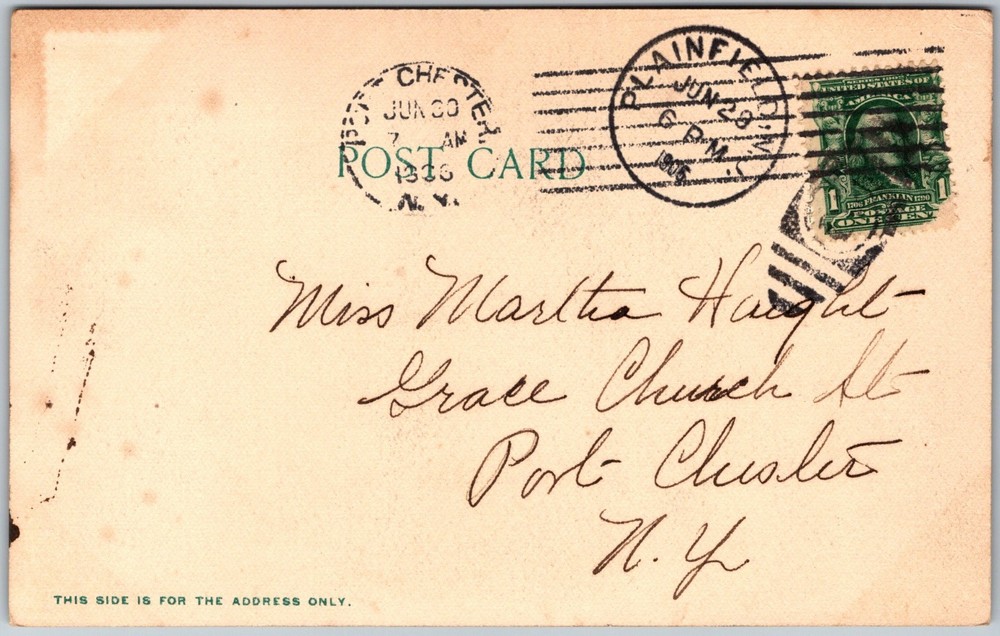 PORT CHESTER,
JUN 30
7 AM
1906
N.Y.
PLAINFIELD, N.J.
JUN 29
6 P.M.
1906
SERIES 1902
UNITED STATES OF
AMERICA
1 1706 FRANKLIN 1790 1
POSTAGE
ONE CENT
POST CARD
Miss Martha Haight
Grace Church St
Port Chester
N.Y.
THIS SIDE IS FOR THE ADDRESS ONLY.